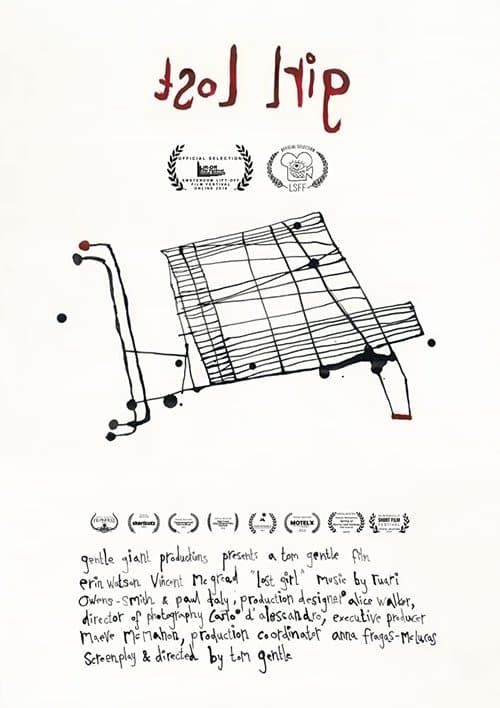 tsoL lrig
OFFICIAL SELECTION
AMSTERDAM LIFT-OFF
FILM FESTIVAL
OFFICIAL SELECTION
LSFF
shortcutz
MOTELX
SHORT FILM
FESTIVAL
gentle giant productions presents a tom gentle film
erin watson Vincent McGread "lost girl" Music by ruari
Owens-Smith & paul daly, production designer alice walker,
director of photography Carlo d'alessandro, executive producer
Maeve McMahon, production coordinator anna fragas-McLucas
Screenplay & directed by tom gentle